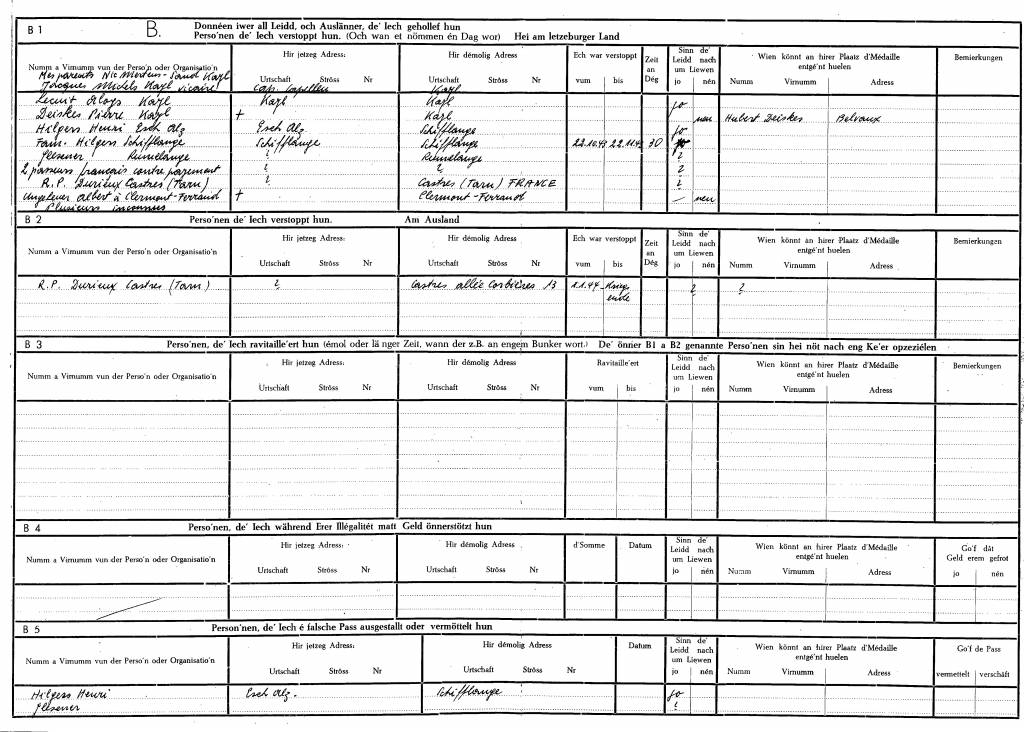 B 1 B. Donnéen iwer all Leidd, och Auslänner, de' Iech gehollef hun
Perso'nen de' Iech verstoppt hun. (Och wan et nömmen én Dag wor) Hei am letzeburger Land
Numm a Virnumm vun der Perso'n oder Organisatio'n Hir jetzeg Adress: Hir démolig Adress Ech war verstoppt Zeit an Dég Sinn de' Leidd nach um Liewen Wien könnt an hirer Plaatz d'Médaille entgé'nt huelen Bemierkungen
Urtschaft Ströss Nr Urtschaft Ströss Nr vum bis jo nén Numm Virnumm Adress
Mes parents Nic Mertens - Sand Kayl
Jacques Michels Kayl vicaire Cap. Capellen Kayl
Lecuit Aloys Kayl Kayl Kayl jo
Deiskes Pierre Kayl + Kayl nen Hubert Deiskes Belvaux
Hilgers Henri Esch Alz Esch Alz. Schifflange jo
Fam. Hilgers Schifflange Schifflange Schifflange 22.10.43 22.11.43 30 jo
Rumelange ? Rumelange ?
2 passeurs français contre payement ? ? ?
R.P. Durieux Castres (Tarn) ? Castres (Tarn) FRANCE ?
Albert à Clermont-Ferrand + Clermont-Ferrand — nen
Plusieurs inconnus
B 2 Perso'nen de' Iech verstoppt hun. Am Ausland
Numm a Virnumm vun der Perso'n oder Organisatio'n Hir jetzeg Adress: Hir démolig Adress Ech war verstoppt Zeit an Dég Sinn de' Leidd nach um Liewen Wien könnt an hirer Plaatz d'Médaille entgé'nt huelen Bemierkungen
Urtschaft Ströss Nr Urtschaft Ströss Nr vum bis jo nén Numm Virnumm Adress
R.P. Durieux Castres (Tarn) ? Castres allée Corbières 13 1.1.44 - Kriegs ? ?
ende
B 3 Perso'nen, de' Iech ravitaille'ert hun (émol oder länger Zeit, wann der z.B. an engem Bunker wort.) De' önner B1 a B2 genannte Perso'nen sin hei nöt nach eng Ke'er opzeziélen
Numm a Virnumm vun der Perso'n oder Organisatio'n Hir jetzeg Adress: Hir démolig Adress Ravitaille'ert Sinn de' Leidd nach um Liewen Wien könnt an hirer Plaatz d'Médaille entgé'nt huelen Bemierkungen
Urtschaft Ströss Nr Urtschaft Ströss Nr vum bis jo nén Numm Virnumm Adress
B 4 Perso'nen, de' Iech während Erer Illégalitét matt Geld önnerstötzt hun
Numm a Virnumm vun der Perso'n oder Organisatio'n Hir jetzeg Adress: Hir démolig Adress d'Somme Datum Sinn de' Leidd nach um Liewen Wien könnt an hirer Plaatz d'Médaille entgé'nt huelen Go'f dât Geld erem gefrot
Urtschaft Ströss Nr Urtschaft Ströss Nr jo nén Numm Virnumm Adress jo nén
B 5 Person'nen, de' Iech é falsche Pass ausgestallt oder vermöttelt hun
Numm a Virnumm vun der Perso'n oder Organisatio'n Hir jetzeg Adress: Hir démolig Adress Datum Sinn de' Leidd nach um Liewen Wien könnt an hirer Plaatz d'Médaille entgé'nt huelen Go'f de Pass
Urtschaft Ströss Nr Urtschaft Ströss Nr jo nén Numm Virnumm Adress vermettelt verschäft
Hilgers Henri Esch Alz. Schifflange jo
?